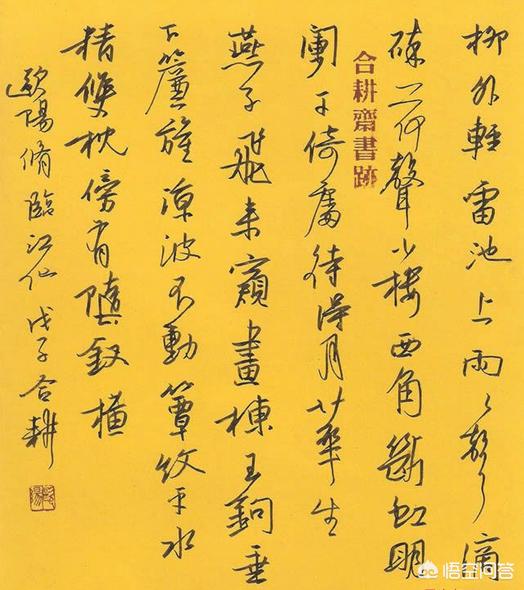 柳外輕雷池上雨〻聲滴
碎荷聲小樓西角斷虹明
闌干倚處待得月華生
燕子飛來窺畫棟玉鉤垂
下簾旌涼波不動簟紋平水
精雙枕傍有墮釵橫
歐陽脩臨江仙 戊子合耕
合耕齋書跡
悟空问答